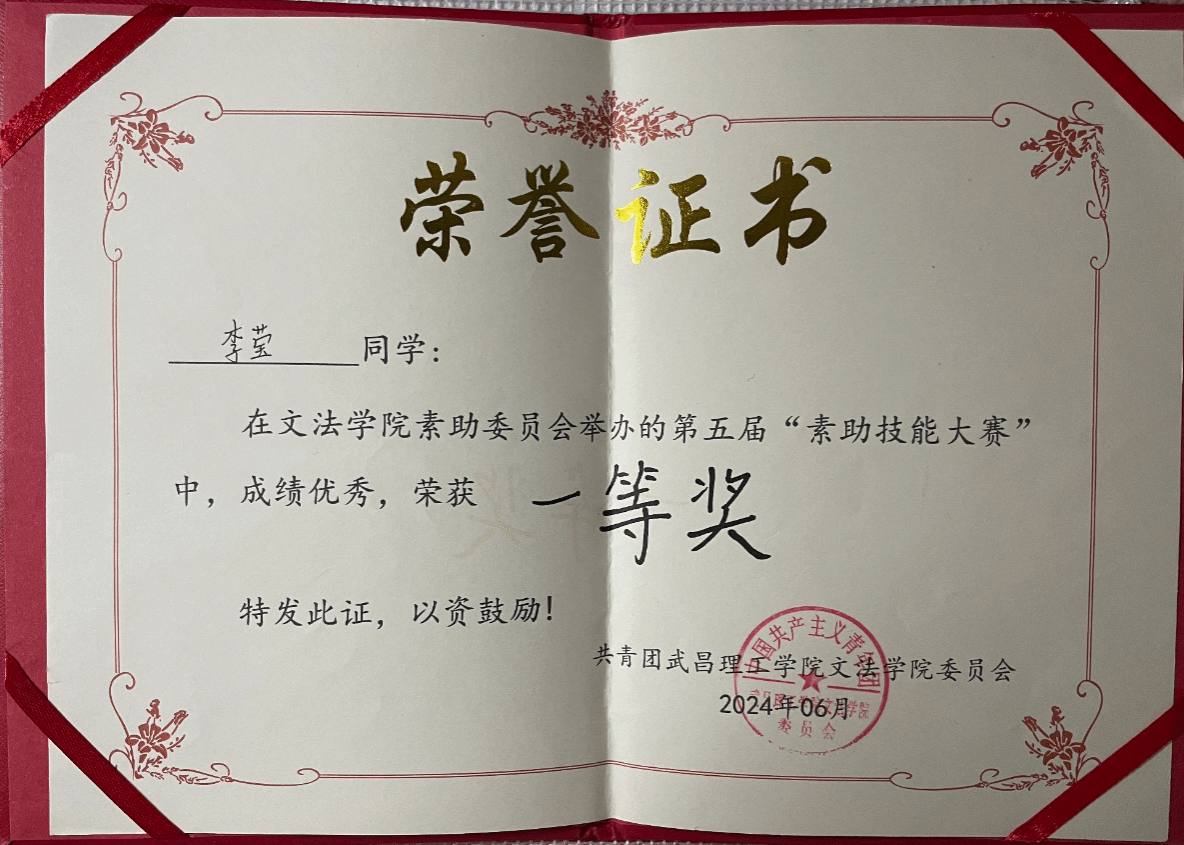 荣誉证书
李莹同学:
在文法学院素助委员会举办的第五届“素助技能大赛”
中，成绩优秀，荣获 一等奖
特发此证，以资鼓励!
共青团武昌理工学院文法学院委员会
2024年06月
中国共产主义青年团
武昌理工学院文法学院
委员会